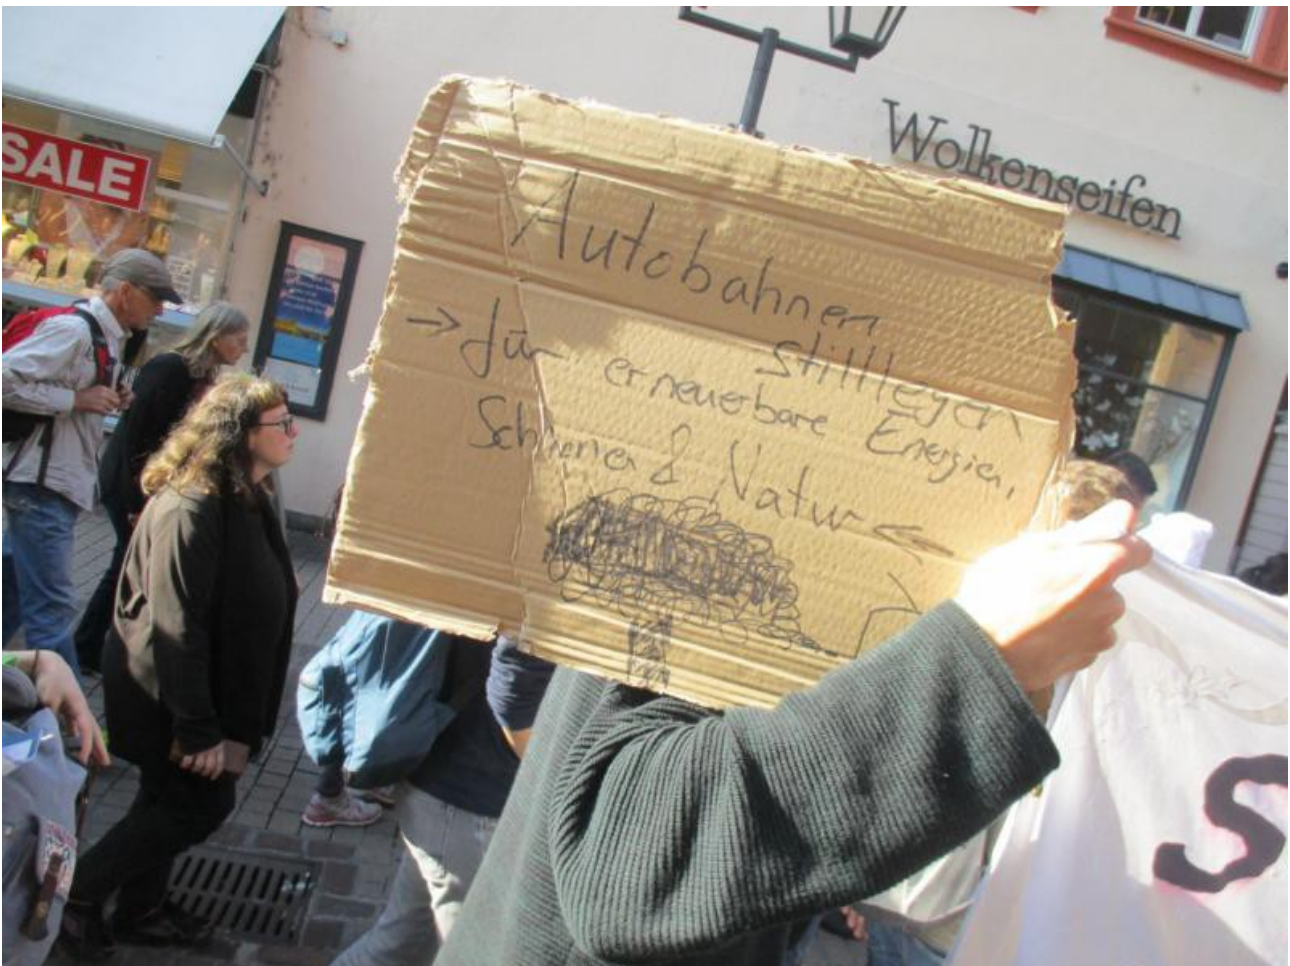 SALE
Wolkenseifen
Autobahnen
stilllegen
→ für erneuerbare Energien,
Schiene & Natur ←
S